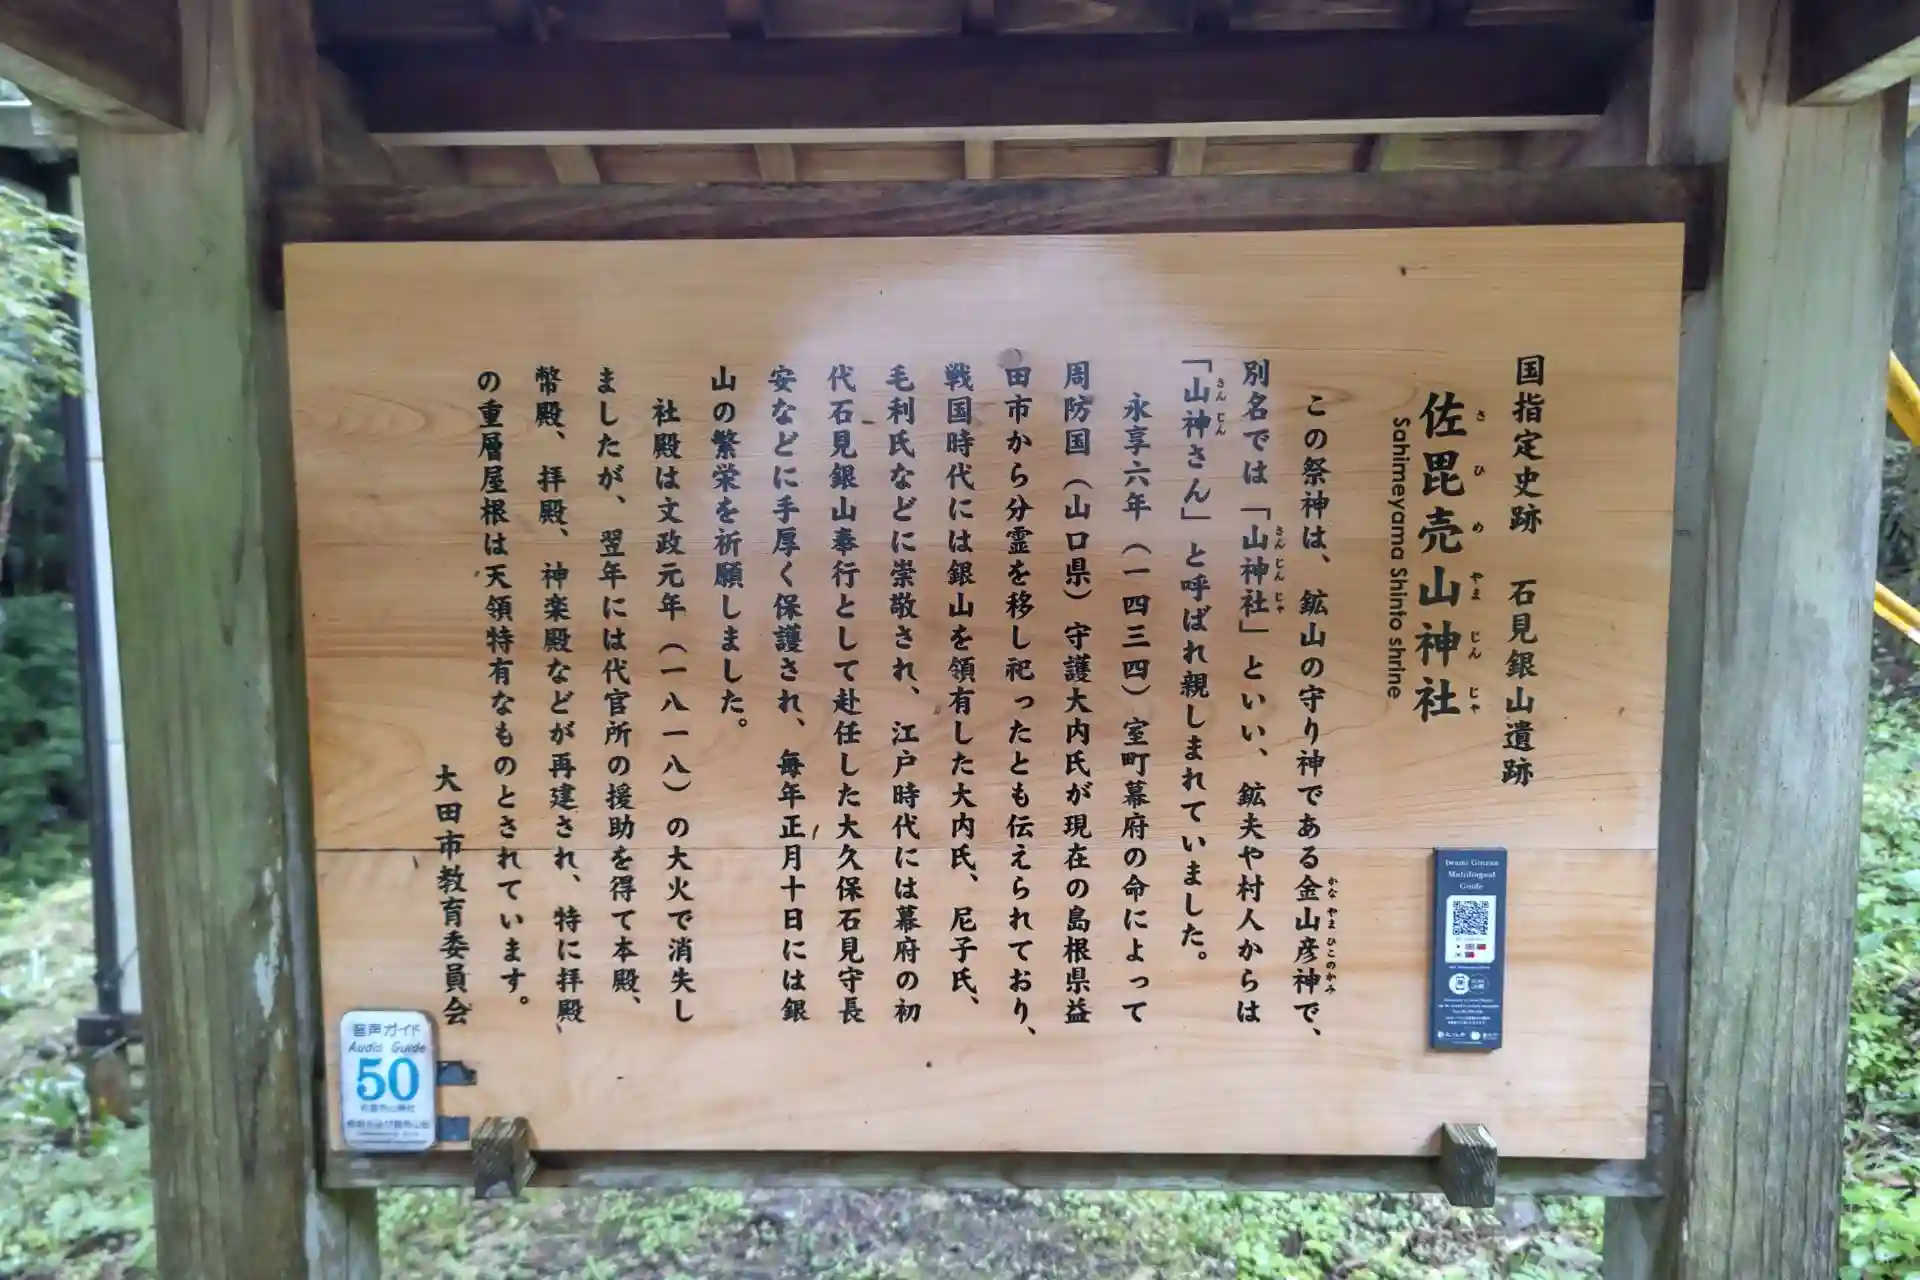 国指定史跡　石見銀山遺跡
佐毘売山神社
さひめやまじんじゃ
Sahimeyama Shinto shrine
この祭神は、鉱山の守り神である金山彦神で、
かなやまひこのかみ
別名では「山神社」といい、鉱夫や村人からは
さんじんじゃ
「山神さん」と呼ばれ親しまれていました。
さんじん
永享六年（一四三四）室町幕府の命によって
周防国（山口県）守護大内氏が現在の島根県益
田市から分霊を移し祀ったとも伝えられており、
戦国時代には銀山を領有した大内氏、尼子氏、
毛利氏などに崇敬され、江戸時代には幕府の初
代石見銀山奉行として赴任した大久保石見守長
安などに手厚く保護され、毎年正月十日には銀
山の繁栄を祈願しました。
社殿は文政元年（一八一八）の大火で消失し
ましたが、翌年には代官所の援助を得て本殿、
幣殿、拝殿、神楽殿などが再建され、特に拝殿
の重層屋根は天領特有なものとされています。
大田市教育委員会
Iwami Ginzan
Multilingual
Guide
音声ガイド
Audio Guide
50
佐毘売山神社